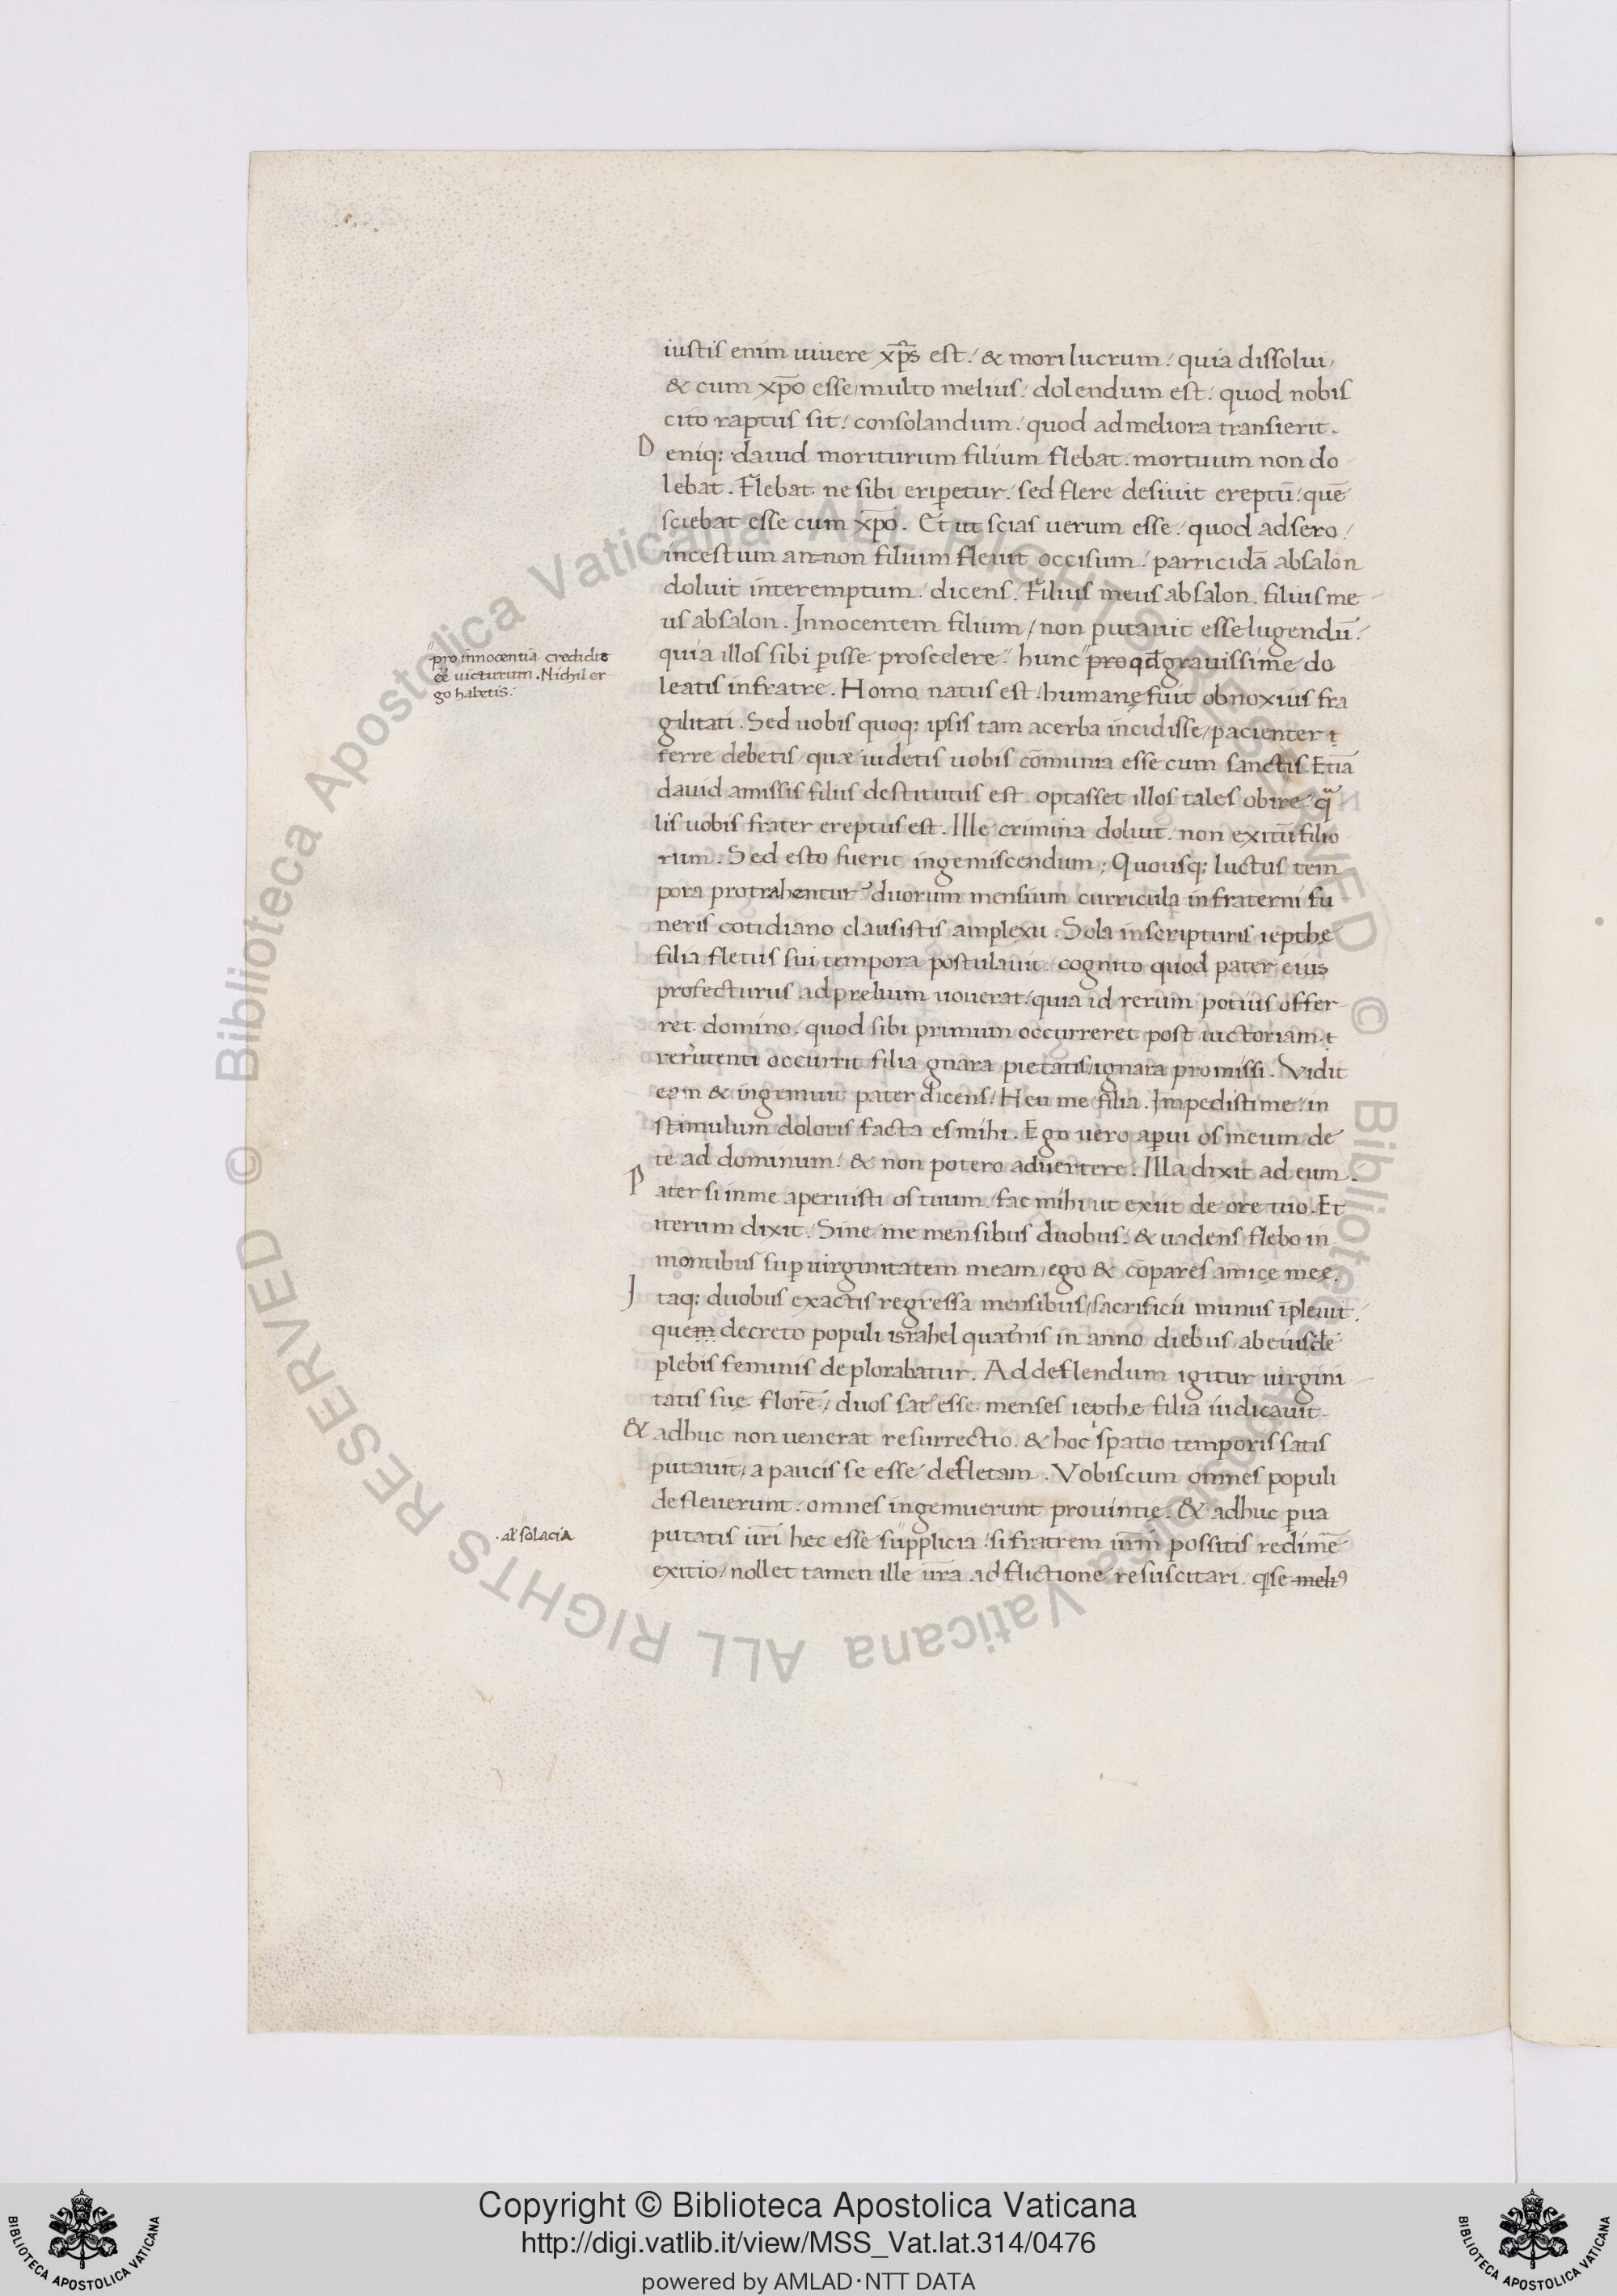 iustis enim uiuere xp̄s est. & mori lucrum. quia dissolui
& cum xp̄o esse multo melius. dolendum est. quod nobis
cito raptus sit. consolandum. quod ad meliora transierit.
Deniq; dauid moriturum filium flebat. mortuum non do
lebat. Flebat ne sibi eriꝑetur. sed flere desiuit ereptū. quē
sciebat esse cum xp̄o. Et ut scias uerum esse. quod adsero.
incestum amnon filium fleuit occisum. parricidā absalon
doluit interemptum. dicens. Filius meus absalon. filius me
us absalon. Innocentem filium non putauit esse lugendū.
pro innocentia credidit
eē uicturum. Nichil er
go habetis.
quia illos sibi ꝑisse pro scelere. hunc pro qđ grauissime do
leatis in fratre. Homo natus est. humanę fuit obnoxius fra
gilitati. Sed uobis quoq; ipsis tam acerba incidisse pacienter
ferre debetis quæ uidetis uobis cōmunia esse cum sanctis. Etiā
dauid amissis filiis destitutus est. optasset illos tales obire. qua
lis uobis frater ereptus est. Ille crimina doluit. non exitū filio
rum. Sed esto fuerit ingemiscendum; Quousq; luctus tem
pora protrahentur? duorum mensium curricula in fraterni fu
neris cotidiano clausistis amplexu. Sola in scripturis iepthę
filia fletus sui tempora postulauit. cognito quod pater eius
profecturus ad prelium uouerat. quia id rerum potius offer
ret domino. quod sibi primum occurreret post uictoriam
reruertenti occurrit filia gnara pietatis ignara promissi. Vidit
eam & ingemuit pater dicens. Heu me filia. Impedisti me. in
stimulum doloris facta es mihi. Ego uero aꝑui os meum de
te ad dominum. & non potero aduertere. Illa dixit ad eum.
Pater si in me aperuisti os tuum. fac mihi ut exiit de ore tuo. Et
iterum dixit. Sine me mensibus duobus. & uadens flebo in
montibus suꝑ uirginitatem meam. ego & cōpares amicę meę.
Itaq; duobus exactis regressa mensibus sacrificii munus īpleuit.
quem decreto populi israhel quat̄nis in anno diebus. ab eiusdē
plebis feminis deplorabatur. Ad deflendum igitur uirgini
tatis suę florē. duos sat esse menses iepthę filia iudicauit.
& adhuc non uenerat resurrectio. & hoc spatio temporis satis
putauit. a paucis se esse defletam. Vobiscum omnes populi
defleuerunt. omnes ingemuerunt prouintię. & adhuc ꝑua
.al̄ solacia
putatis ūri hec esse supplicia. si fratrem ūrm possitis redimē
exitio. nollet tamen ille ūra adflictione resuscitari. q̄ se meliꝰ
Copyright © Biblioteca Apostolica Vaticana
http://digi.vatlib.it/view/MSS_Vat.lat.314/0476
powered by AMLAD·NTT DATA
BIBLIOTECA APOSTOLICA VATICANA
BIBLIOTECA APOSTOLICA VATICANA
© Biblioteca Apostolica Vaticana ALL RIGHTS RESERVED © Biblioteca Apostolica Vaticana ALL RIGHTS RESERVED